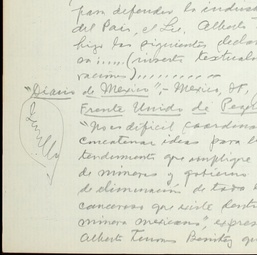 para defender la industria
del País, el Lic. Alberto
hizo las siguientes declar
(inserte textual
"Diario de Mexico", - Mexico, DF,
Frente Unido de Pequ
"No es dificil coordinar
concatenar ideas para l
tendimiento que amplique
de mineros y gobierno
de eliminación de todo
canceroso que existe dent
minera mexicana", expres
Alberto Terrones Benitez que